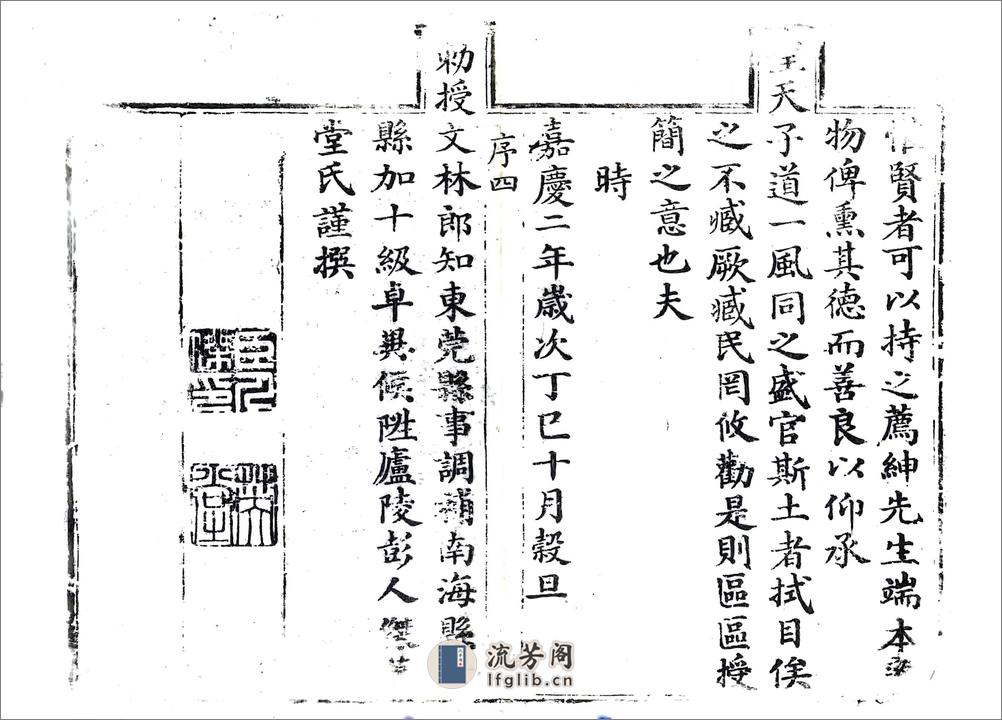 惟賢者可以持之薦紳先生端本
物俾熏其德而善良以仰承
聖天子道一風同之盛官斯土者拭目俟
之不臧厥臧民罔攸勸是則區區授
簡之意也夫
時
嘉慶二年歲次丁巳十月穀旦
序四
勅授文林郎知東莞縣事調補南海縣
縣加十級卓異候陞廬陵彭人傑
堂氏謹撰
流芳阁
lfglib.cn